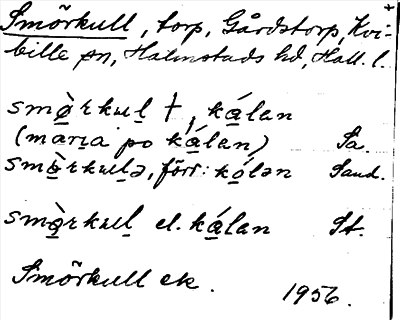 Smörkull, torp, Gårdstorp, Kvi-
bille sn, Halmstads hd, Hall. l.
smø̀rkul †, kálan
(maria po kálan) Sa.
smø̀rkulə, förr: kólən Sand.
smø̀rkul el. kálan St.
Smörkull ek. 1956.